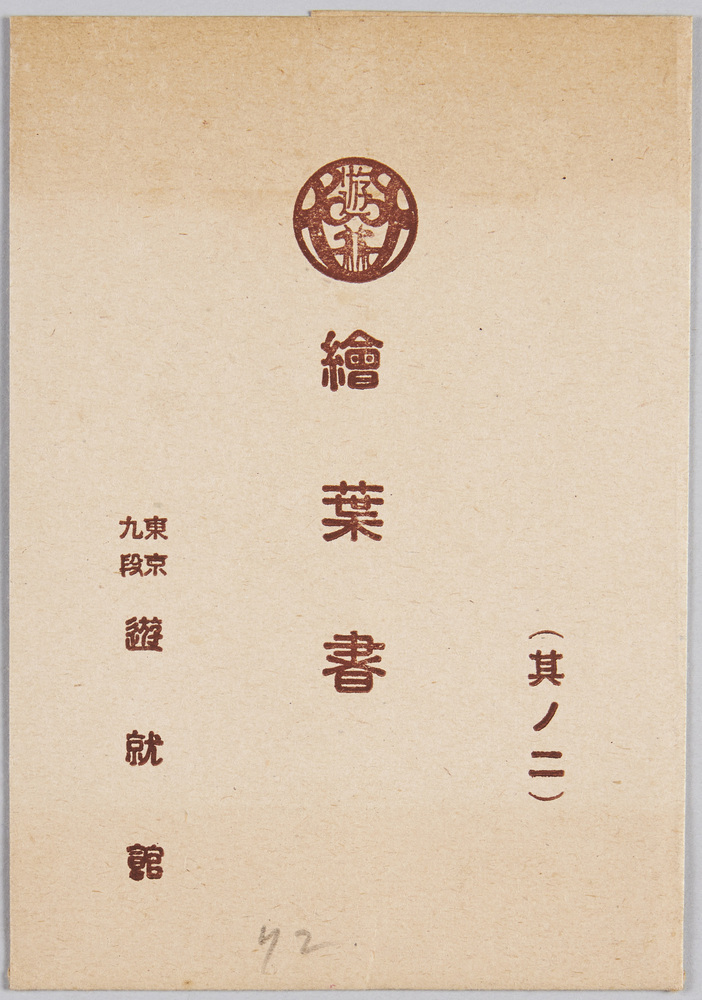 (其ノ二)
遊就
繪葉書
東京
九段
遊就館
42